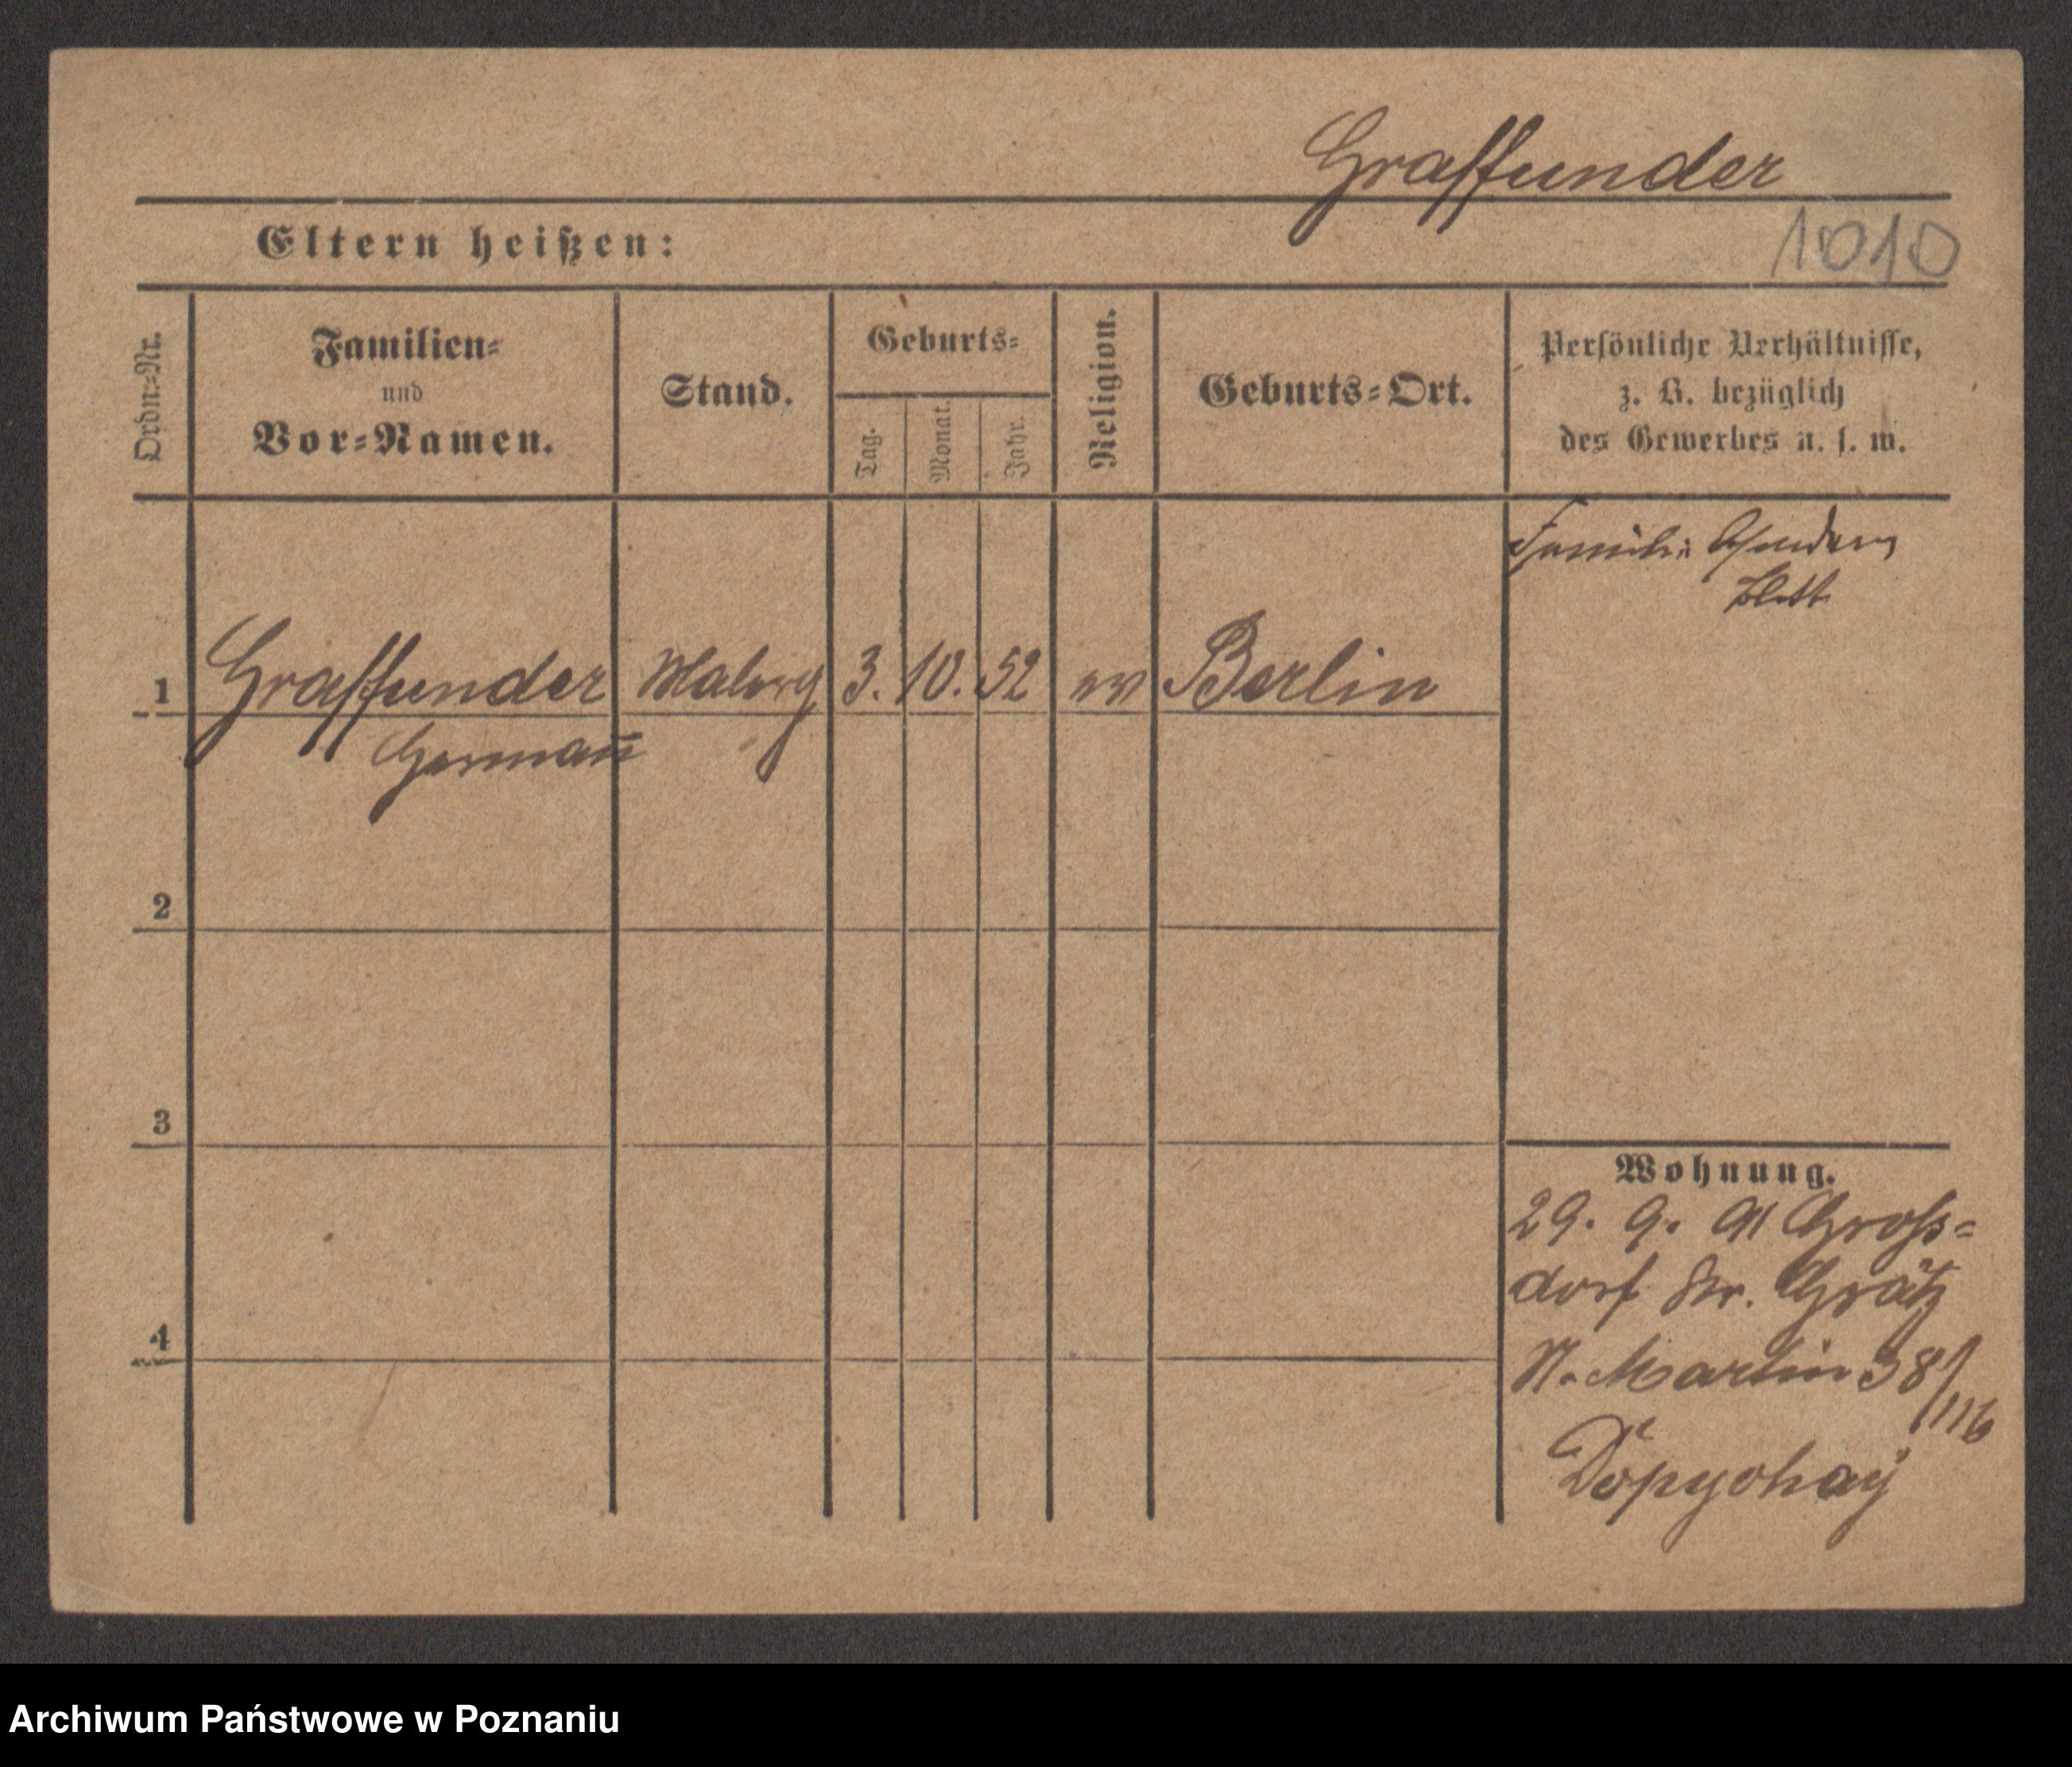 Graffunder
1010
Eltern heißen:
Ordn=Nr.
Familien=
und
Vor=Namen.
Stand.
Geburts=
Tag.
Monat.
Jahr.
Religion.
Geburts=Ort.
Persönliche Verhältnisse,
z. B. bezüglich
des Gewerbes u. s. w.
Familie
Blatt
1 Graffunder Malerg 3. 10. 52 ev Berlin
Herman̅
2
3
4
Wohnung.
29. 9. 91 Groß=
dorf Kr. Grätz
St. Martin 38/116
Archiwum Państwowe w Poznaniu